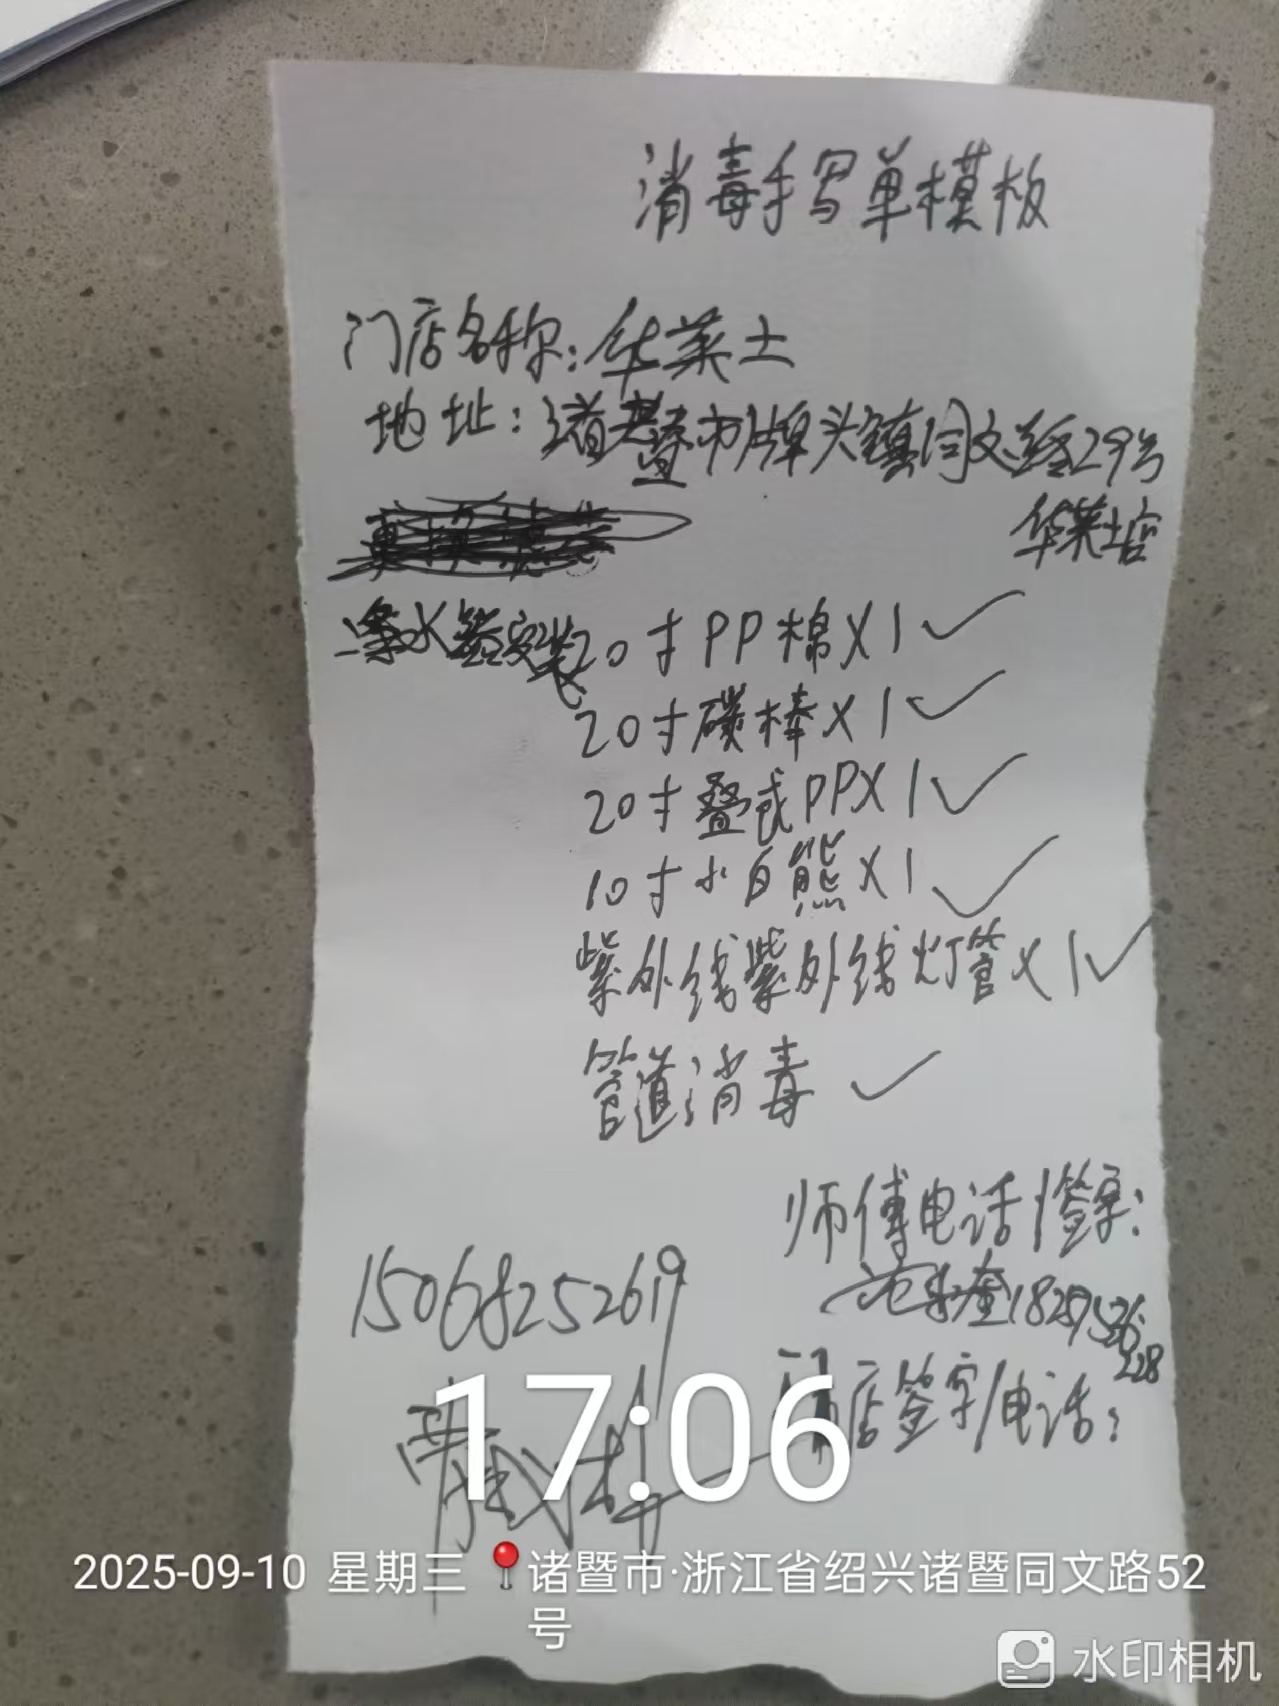 消毒手写单模板
门店名称：华莱士
地址：诸暨市牌头镇同文路29号
华莱士店
净水器安装20寸PP棉X1✓
20寸碳棒X1✓
20寸叠式PPX1✓
10寸小白熊X1✓
紫外线紫外线灯管X1✓
管道消毒✓
师傅电话/签字：
18257526228
15068252619
门店签字/电话：
17:06
2025-09-10 星期三 诸暨市·浙江省绍兴诸暨同文路52号
水印相机